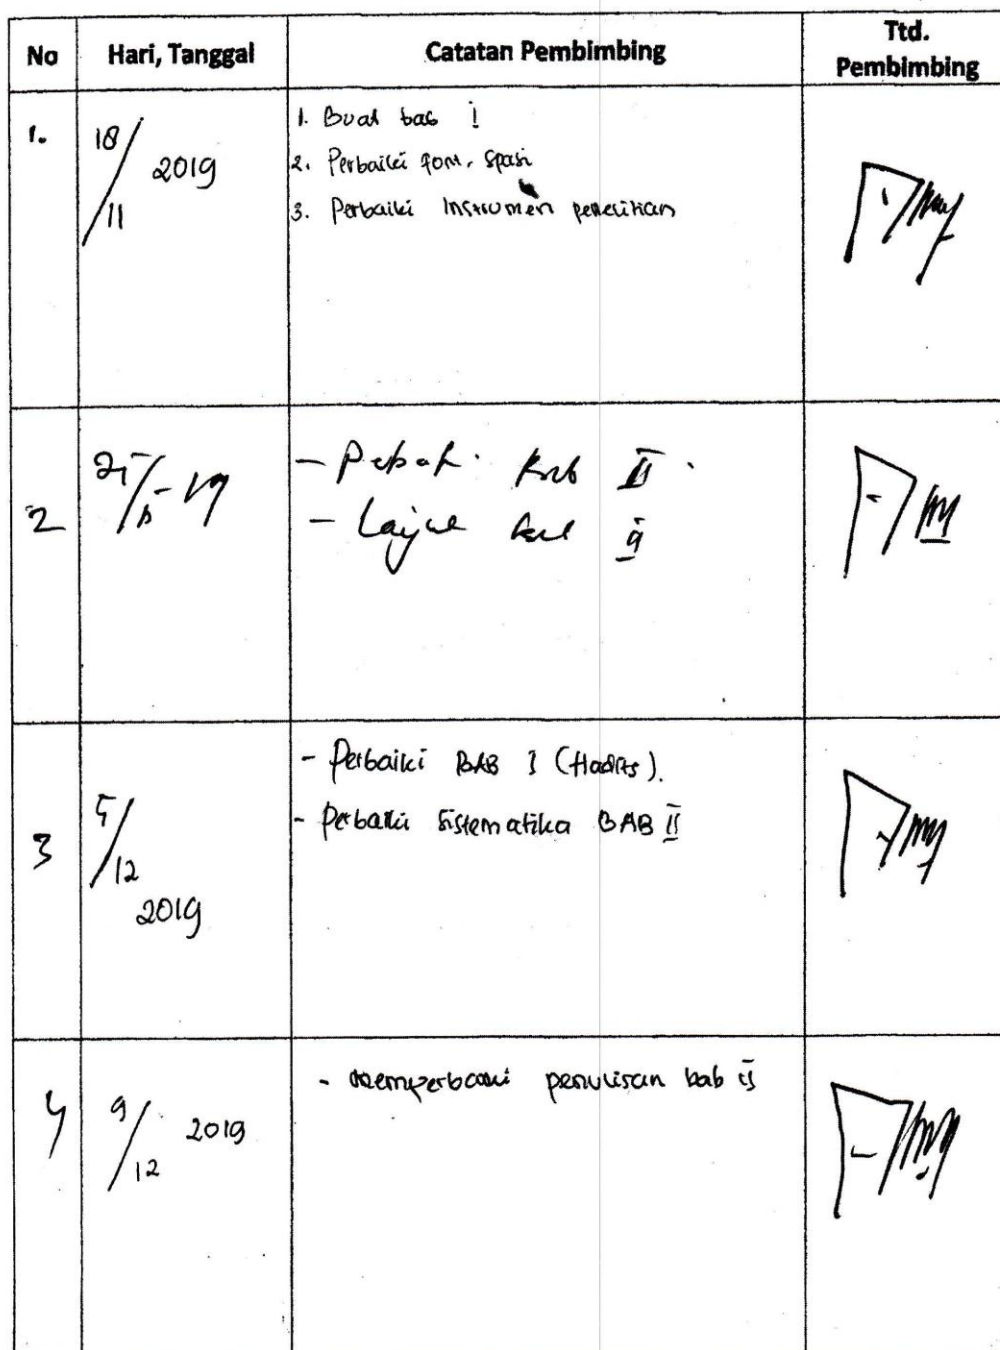 No Hari, Tanggal Catatan Pembimbing Ttd. Pembimbing
1. 18/11 2019
1. Buat bab I
2. Perbaiki font, spasi
3. Perbaiki Instrumen penelitian
2
- bab II
- bab
3 5/12 2019
- Perbaiki BAB I (Hadits).
- Perbaiki Sistematika BAB II
4 9/12 2019
- memperbaiki penulisan bab II